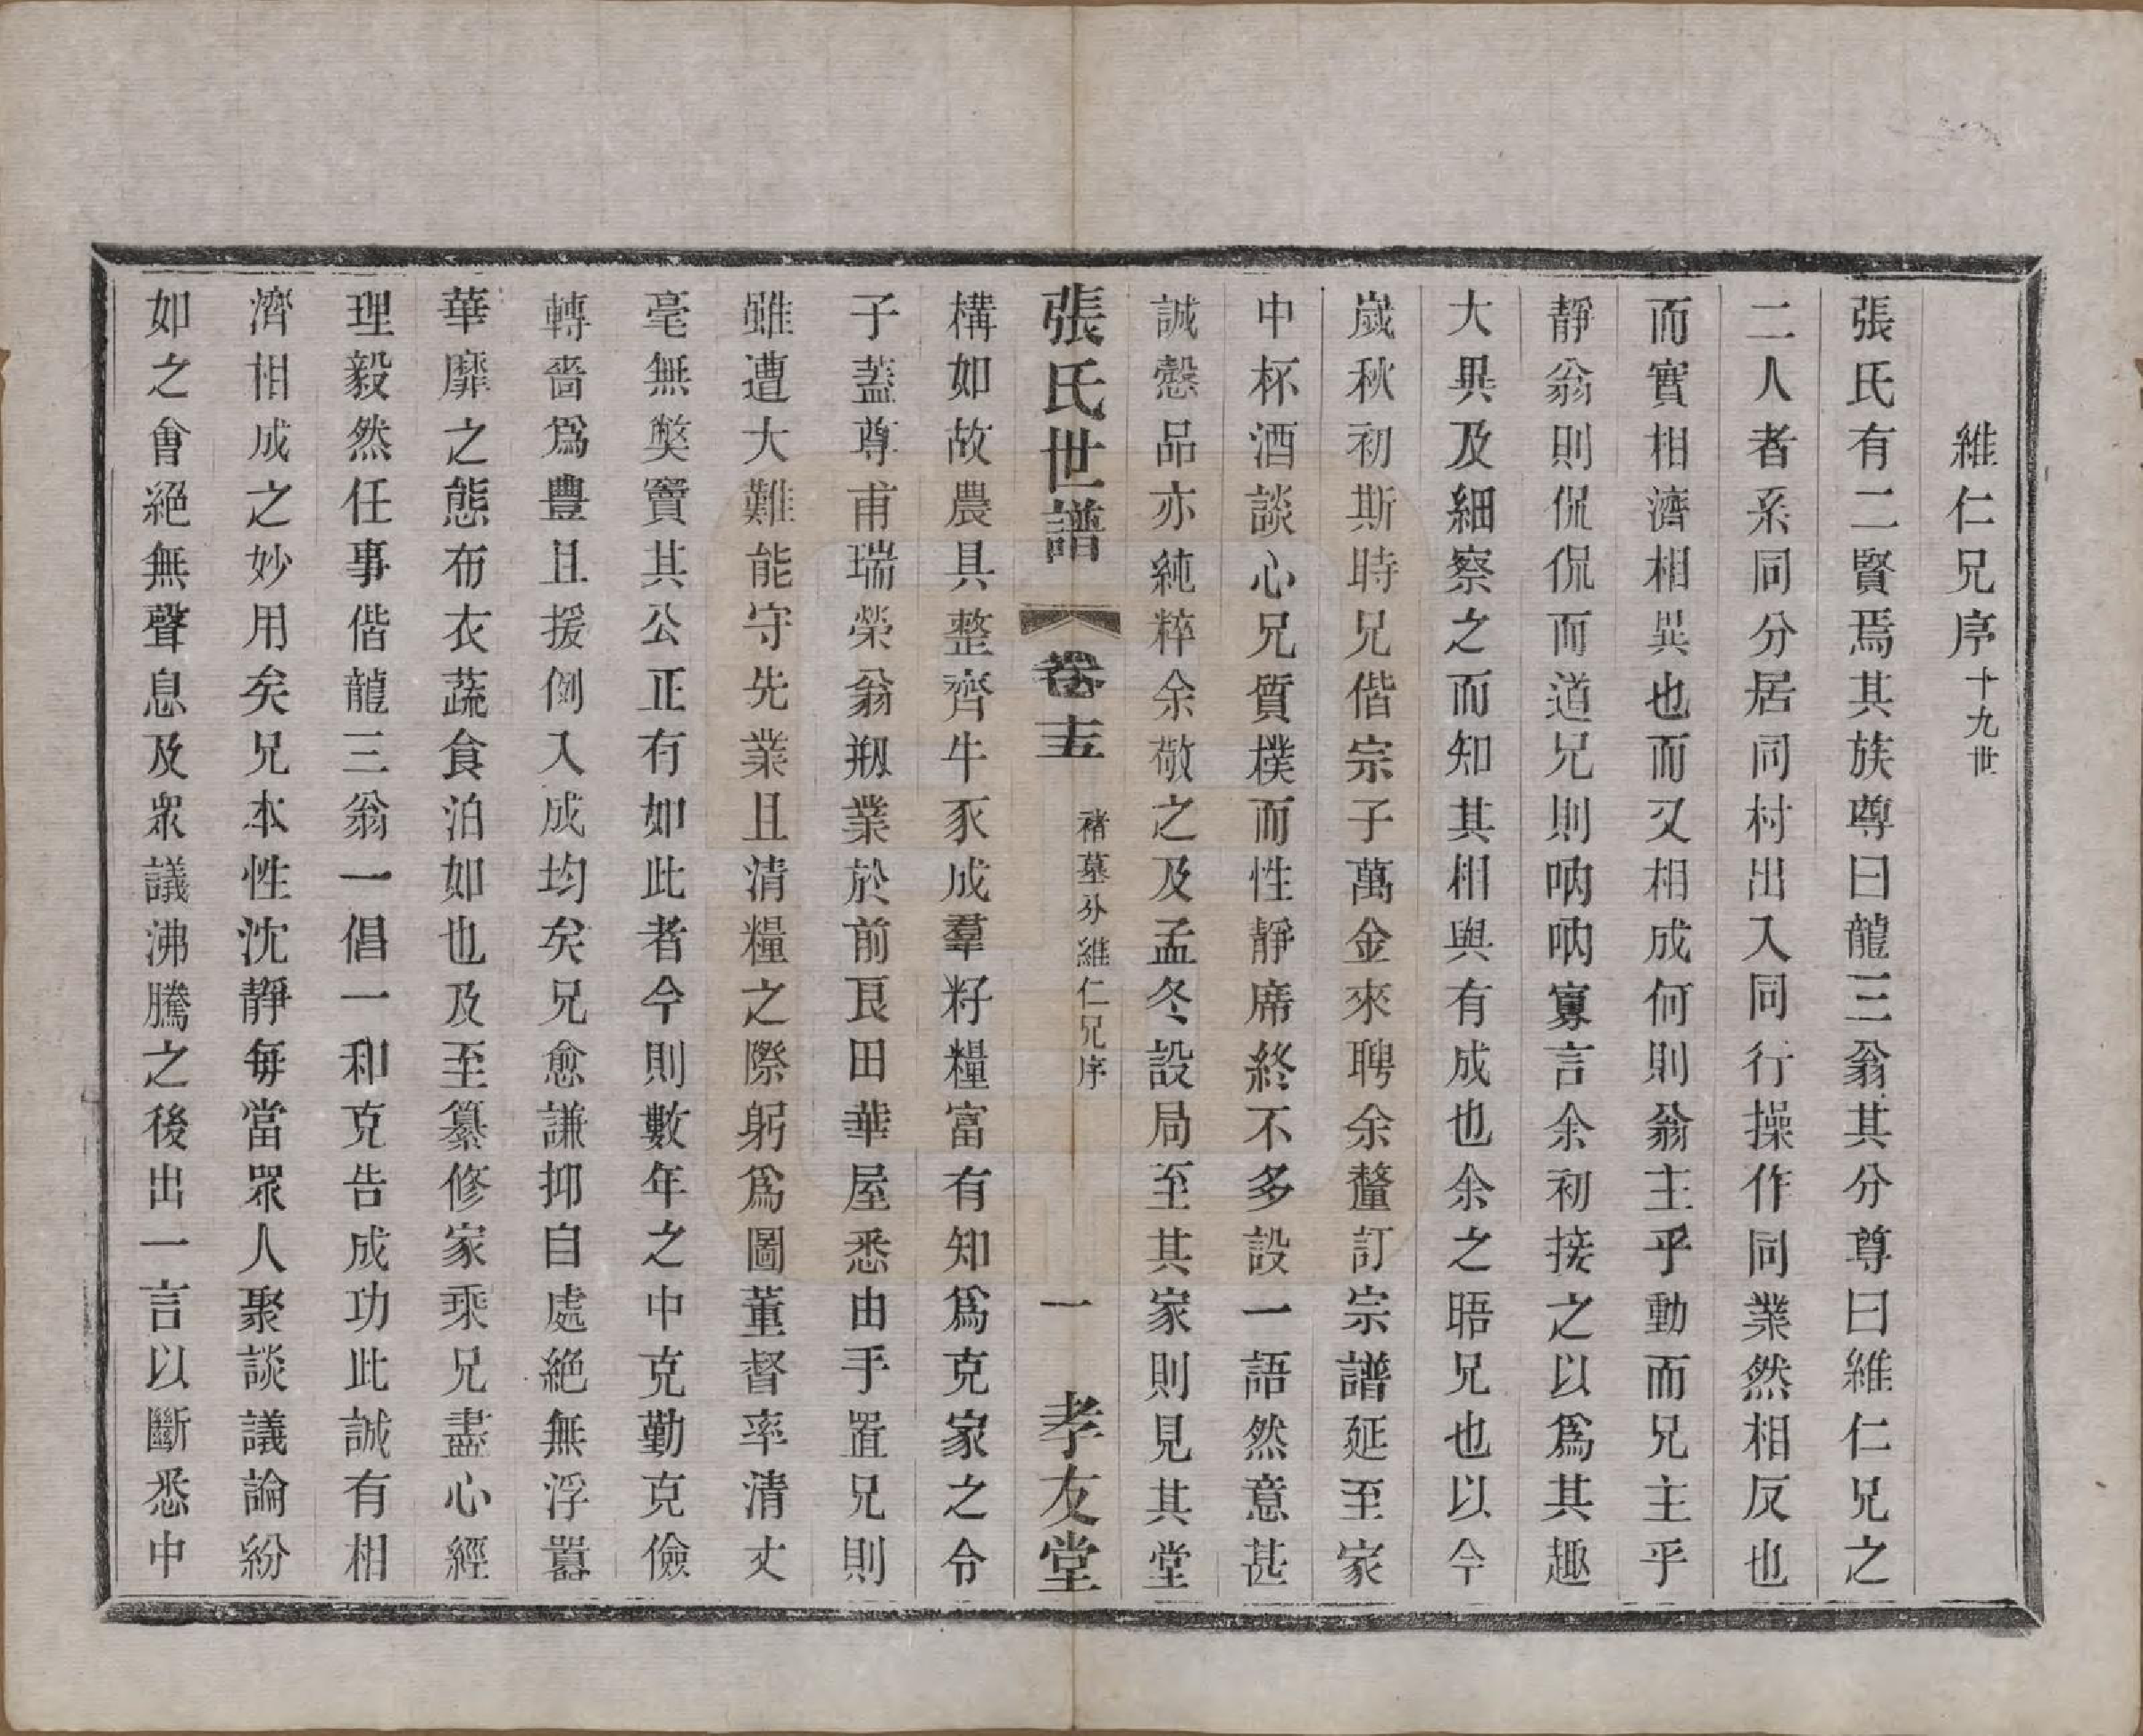 維仁兄序十九世
張氏有二賢焉其族尊曰龍三翁其分尊曰維仁兄之
二人者系同分居同村出入同行操作同業然相反也
而實相濟相異也而又相成何則翁主乎動而兄主乎
靜翁則侃侃而道兄則吶吶寡言余初接之以爲其趣
大異及細察之而知其相與有成也余之晤兄也以今
嵗秋初斯時兄偕宗子萬金來聘余釐訂宗譜延至家
中杯酒談心兄質樸而性靜席終不多設一語然意甚
誠慤品亦純粹余敬之及孟冬設局至其家則見其堂
張氏世譜 卷十五 褚墓分維仁兄序 一 孝友堂
構如故農具整齊牛豕成羣籽糧富有知爲克家之令
子蓋尊甫瑞榮翁剏業於前良田華屋悉由手置兄則
雖遭大難能守先業且清糧之際躬爲圖董督率清丈
毫無獘竇其公正有如此者今則數年之中克勤克儉
轉嗇爲豐且援例入成均矣兄愈謙抑自處絕無浮囂
華靡之態布衣蔬食泊如也及至纂修家乘兄盡心經
理毅然任事偕龍三翁一倡一和克告成功此誠有相
濟相成之妙用矣兄本性沈靜每當眾人聚談議論紛
如之會絕無聲息及衆議沸騰之後出一言以斷悉中